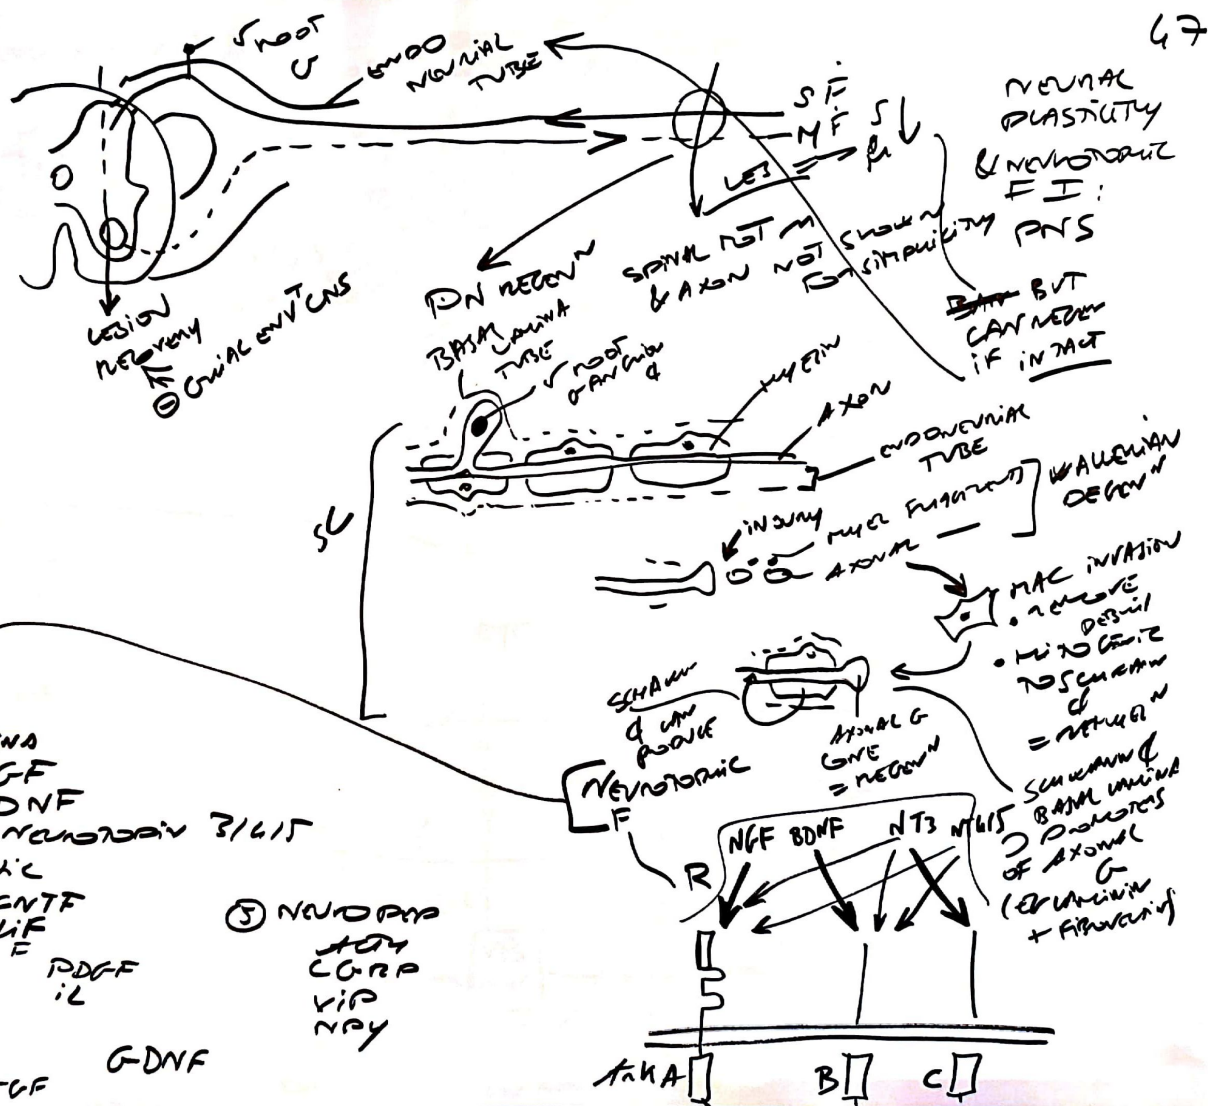 47
√ ROOT
G
ENDO
NEURIAL
TUBE
S F
M F S
LES
NEURAL
PLASTICITY
& NEUROTROPHIC
F I:
PNS
SPINAL ROT M
& AXON NOT SHOWN
FOR SIMPLICITY
BUT
CAN REGEN
IF INTACT
LESION
RECOVERY
⊖ GLIAL ENVT CNS
PN REGENN
BASAL
LAMINA
TUBE
√ ROOT
GANGLION
MYELIN
AXON
ENDONEURIAL
TUBE
SC
INJURY
MYEL FRAGMENTS
AXONAL
WALLERIAN
DEGENN
MAC INVASION
• REMOVE
DEBRIS
• MITOGENIC
TO SCHWANN
= REMYELN
SCHWANN
CAN
PRODUCE
NEUROTROPHIC
F
AXONAL G
CONE
= REGENN
SCHWANN &
BASAL LAMINA
PROMOTERS
OF AXONAL
G
(EG LAMININ
+ FIBRONECTIN)
R NGF BDNF NT3 NT4/5
TrkA B C
GF
DNF
NEUROTROPIN 3/4/5
CNTF
LIF
F
PDGF
IL
GDNF
TGF
⑤ NEUROPEP
ACTH
CGRP
VIP
NPY